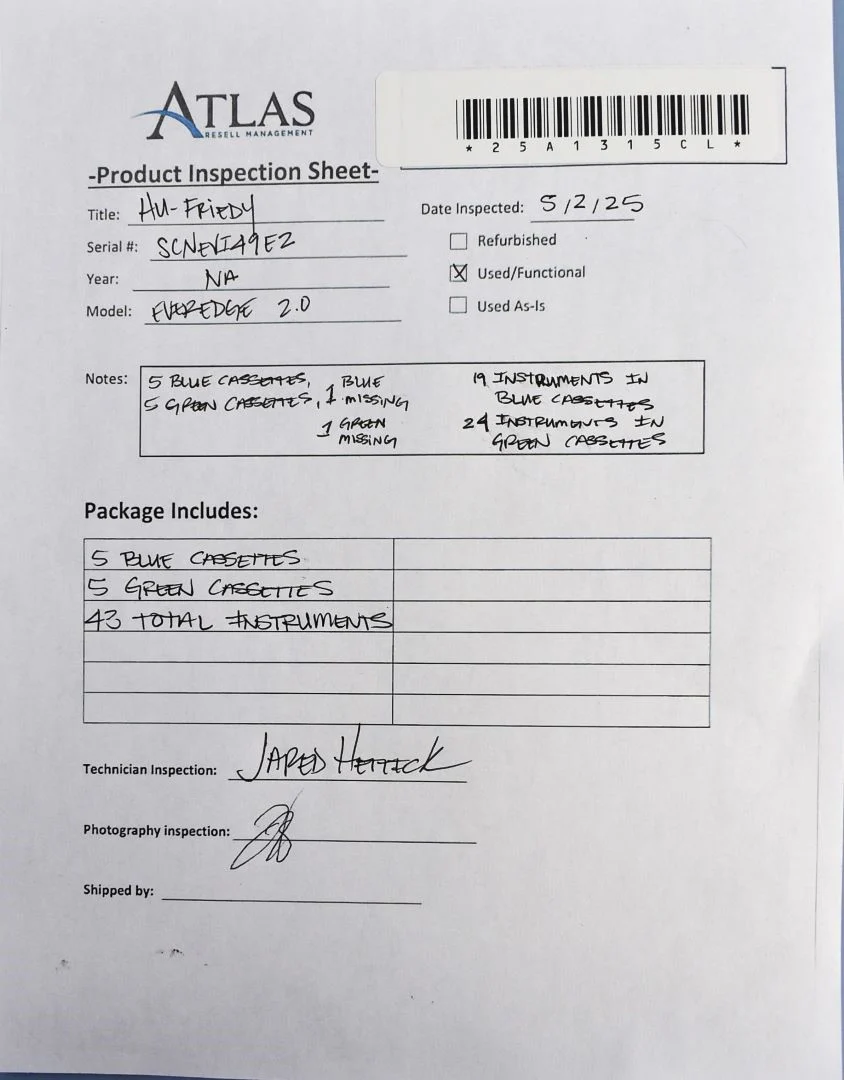 ATLAS
RESELL MANAGEMENT
* 2 5 A 1 3 1 5 C L *
-Product Inspection Sheet-
Title: HU-FRIEDY
Date Inspected: 5/2/25
Serial #: SCNEVI49E2
Refurbished
Year: NA
Used/Functional
Model: EVEREDGE 2.0
Used As-Is
Notes:
5 BLUE CASSETTES, 1 BLUE MISSING
5 GREEN CASSETTES, 1 GREEN MISSING
19 INSTRUMENTS IN
BLUE CASSETTES
24 INSTRUMENTS IN
GREEN CASSETTES
Package Includes:
5 BLUE CASSETTES
5 GREEN CASSETTES
43 TOTAL INSTRUMENTS
Technician Inspection: JARED HETTICK
Photography inspection:
Shipped by: